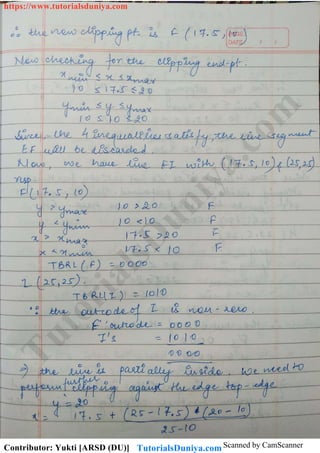 https://www.tutorialsduniya.com
DATE
∴ the new clipping pt. is F (17.5, 10)
Now checking for the clipping end-pt.
xmin ≤ x ≤ xmax
10 ≤ 17.5 ≤ 20
ymin ≤ y ≤ ymax
10 ≤ 10 ≤ 20
Since the 4 inequalities satisfy, the line segment
EF will be discarded.
Now, we have line FI with (17.5, 10) & (25,25)
F(17.5, 10)
y > ymax 10 > 20 F
y < ymin 10 < 10 F
x > xmax 17.5 > 20 F
x < xmin 17.5 < 10 F
TBRL (F) = 0000
I (25,25).
TBRL(I) = 1010
∵ the outcode of I is non-zero.
F outcode = 0000
I's = 1010
0000
⇒ the line is partially inside. We need to
perform further clipping against the edge top-edge
y = 20
x = 17.5 + (25-17.5) * (20-10)
25-10
Tutorials Duniya.com
Contributor: Yukti [ARSD (DU)] TutorialsDuniya.com Scanned by CamScanner